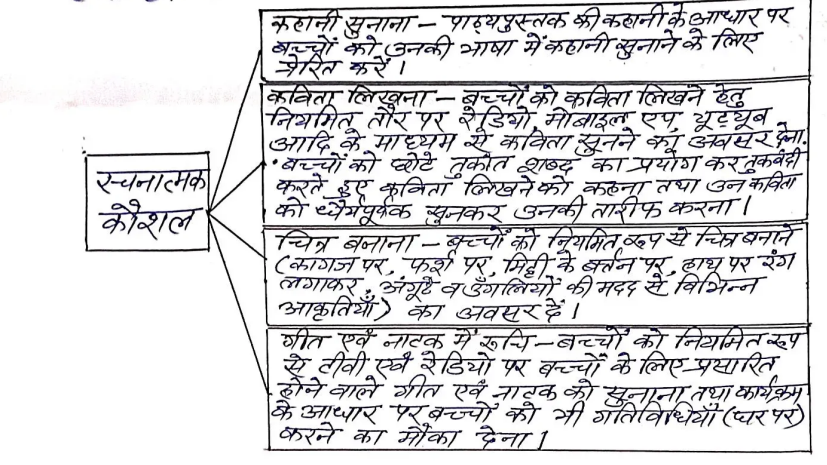 रचनात्मक
कौशल
कहानी सुनाना – पाठ्यपुस्तक की कहानी के आधार पर
बच्चों को उनकी भाषा में कहानी सुनाने के लिए
प्रेरित करें।
कविता लिखना – बच्चों को कविता लिखने हेतु
नियमित तौर पर रेडियो, मोबाइल एप, यूट्यूब
आदि के माध्यम से कविता सुनने का अवसर देना.
• बच्चों को छोटे तुकांत शब्द का प्रयोग कर तुकबंदी
करते हुए कविता लिखने को कहना तथा उन कविता
को धैर्यपूर्वक सुनकर उनकी तारीफ करना।
चित्र बनाना – बच्चों को नियमित रूप से चित्र बनाने
(कागज पर, फर्श पर, मिट्टी के बर्तन पर, हाथ पर रंग
लगाकर, अंगूठे व उँगलियों की मदद से विभिन्न
आकृतियाँ) का अवसर दें।
गीत एवं नाटक में रूचि – बच्चों को नियमित रूप
से टीवी एवं रेडियो पर बच्चों के लिए प्रसारित
होने वाले गीत एवं नाटक को सुनाना तथा कार्यक्रम
के आधार पर बच्चों को भी गतिविधियाँ (घर पर)
करने का मौका देना।